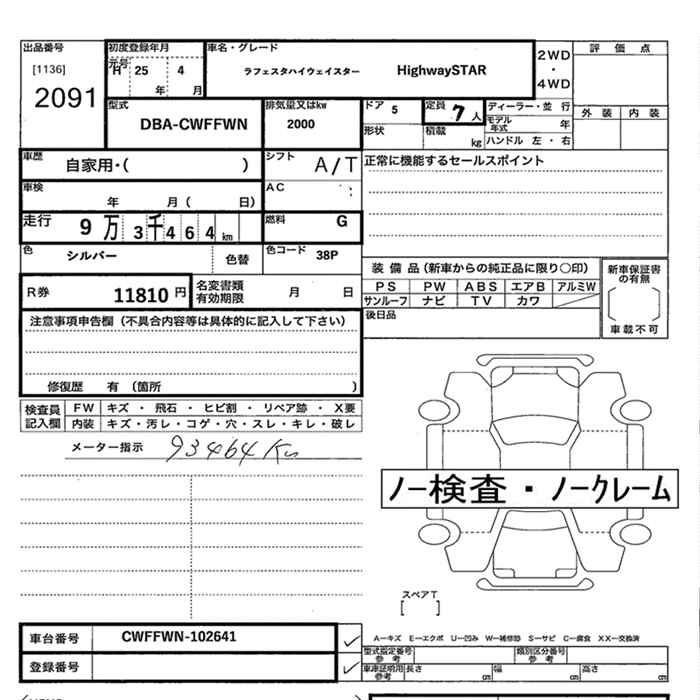 出品番号 初度登録年月 車名・グレード 2WD 評価点
[1136] 元号 H 25 4 ラフェスタハイウェイスター HighwaySTAR ・
2091 年 月 4WD
型式 排気量又はkw ドア 5 定員 7人 ディーラー・並行 外装 内装
DBA-CWFFWN 2000 形状 積載 kg モデル年式 年
ハンドル 左・右
車歴 自家用・( ) シフト A/T 正常に機能するセールスポイント
車検 年 月( 日) AC
走行 9万3千464km 燃料 G
色 シルバー 色替 色コード 38P
装備品(新車からの純正品に限り○印) 新車保証書の有無
R券 11810円 名変書類有効期限 月 日 PS PW ABS エアB アルミW
サンルーフ ナビ TV カワ
注意事項申告欄(不具合内容等は具体的に記入して下さい) 後日品 車載不可
修復歴 有 (箇所 )
検査員記入欄 FW キズ・飛石・ヒビ割・リペア跡・X要
内装 キズ・汚レ・コゲ・穴・スレ・キレ・破レ
メーター指示 93464Km
ノー検査・ノークレーム
スペアT
[ ]
車台番号 CWFFWN-102641 A―キズ E―エクボ U―凹み W―補修跡 S―サビ C―腐食 XX―交換済
型式指定番号 参考 類別区分番号 参考
登録番号 車庫証明用 参考 長さ cm 幅 cm 高さ cm